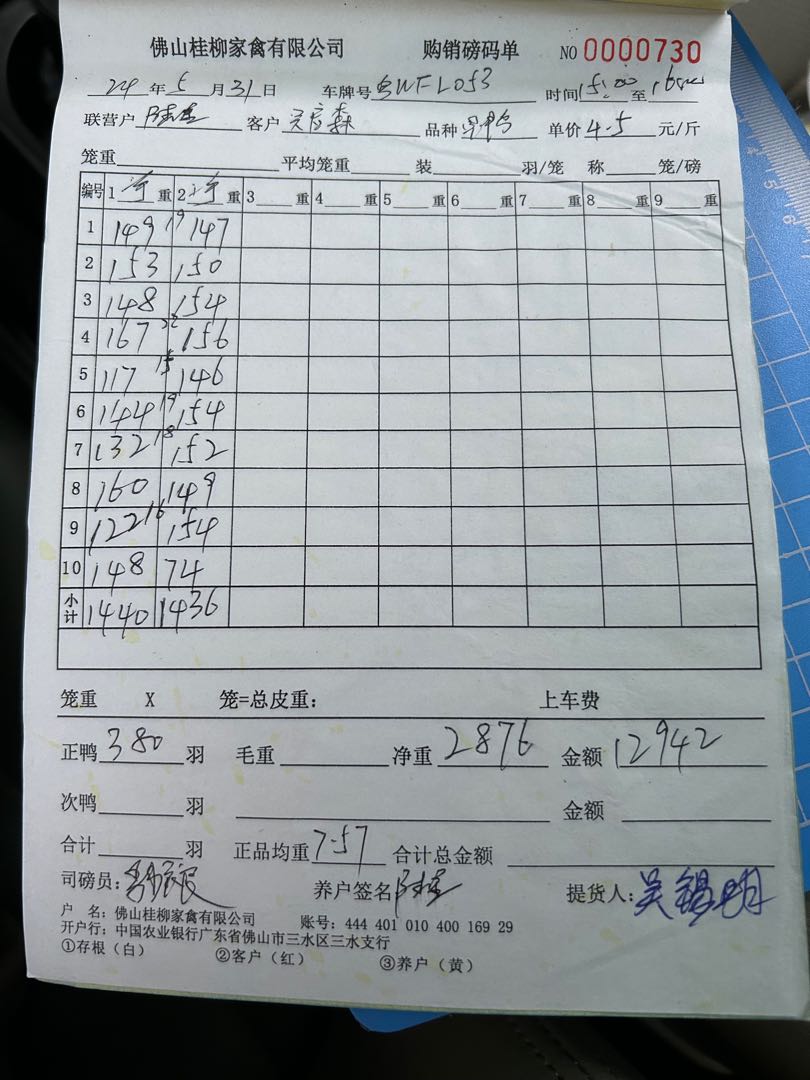 佛山桂柳家禽有限公司 购销磅码单 NO 0000730
24 年 5 月 31 日 车牌号 粤WFL053 时间 15:00 至
联营户 客户 森 品种 单价 4.5 元/斤
笼重 平均笼重 装 羽/笼 称 笼/磅
编号 1 净 重 2 净 重 3 重 4 重 5 重 6 重 7 重 8 重 9 重
1 149 19 147
2 153 150
3 148 154
4 167 22 156
5 117 15 146
6 144 19 154
7 132 18 152
8 160 149
9 122 16 154
10 148 74
小计 1440 1436
笼重 X 笼=总皮重: 上车费
正鸭 380 羽 毛重 净重 2876 金额 12942
次鸭 羽 金额
合计 羽 正品均重 7.57 合计总金额
司磅员: 养户签名 提货人: 吴锡明
户 名: 佛山桂柳家禽有限公司 账号: 444 401 010 400 169 29
开户行: 中国农业银行广东省佛山市三水区三水支行
①存根(白) ②客户(红) ③养户(黄)